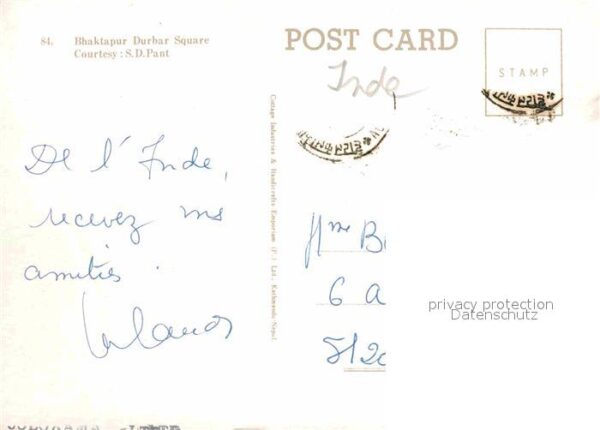 84. Bhaktapur Durbar Square
Courtesy : S.D.Pant
POST CARD
STAMP
Inde
De l'Inde,
recevez mes
amitiés.
Cottage Industries & Handicrafts Emporium (P.) Ltd., Kathmandu-Nepal.
Mme B
6 A
512
privacy protection
Datenschutz